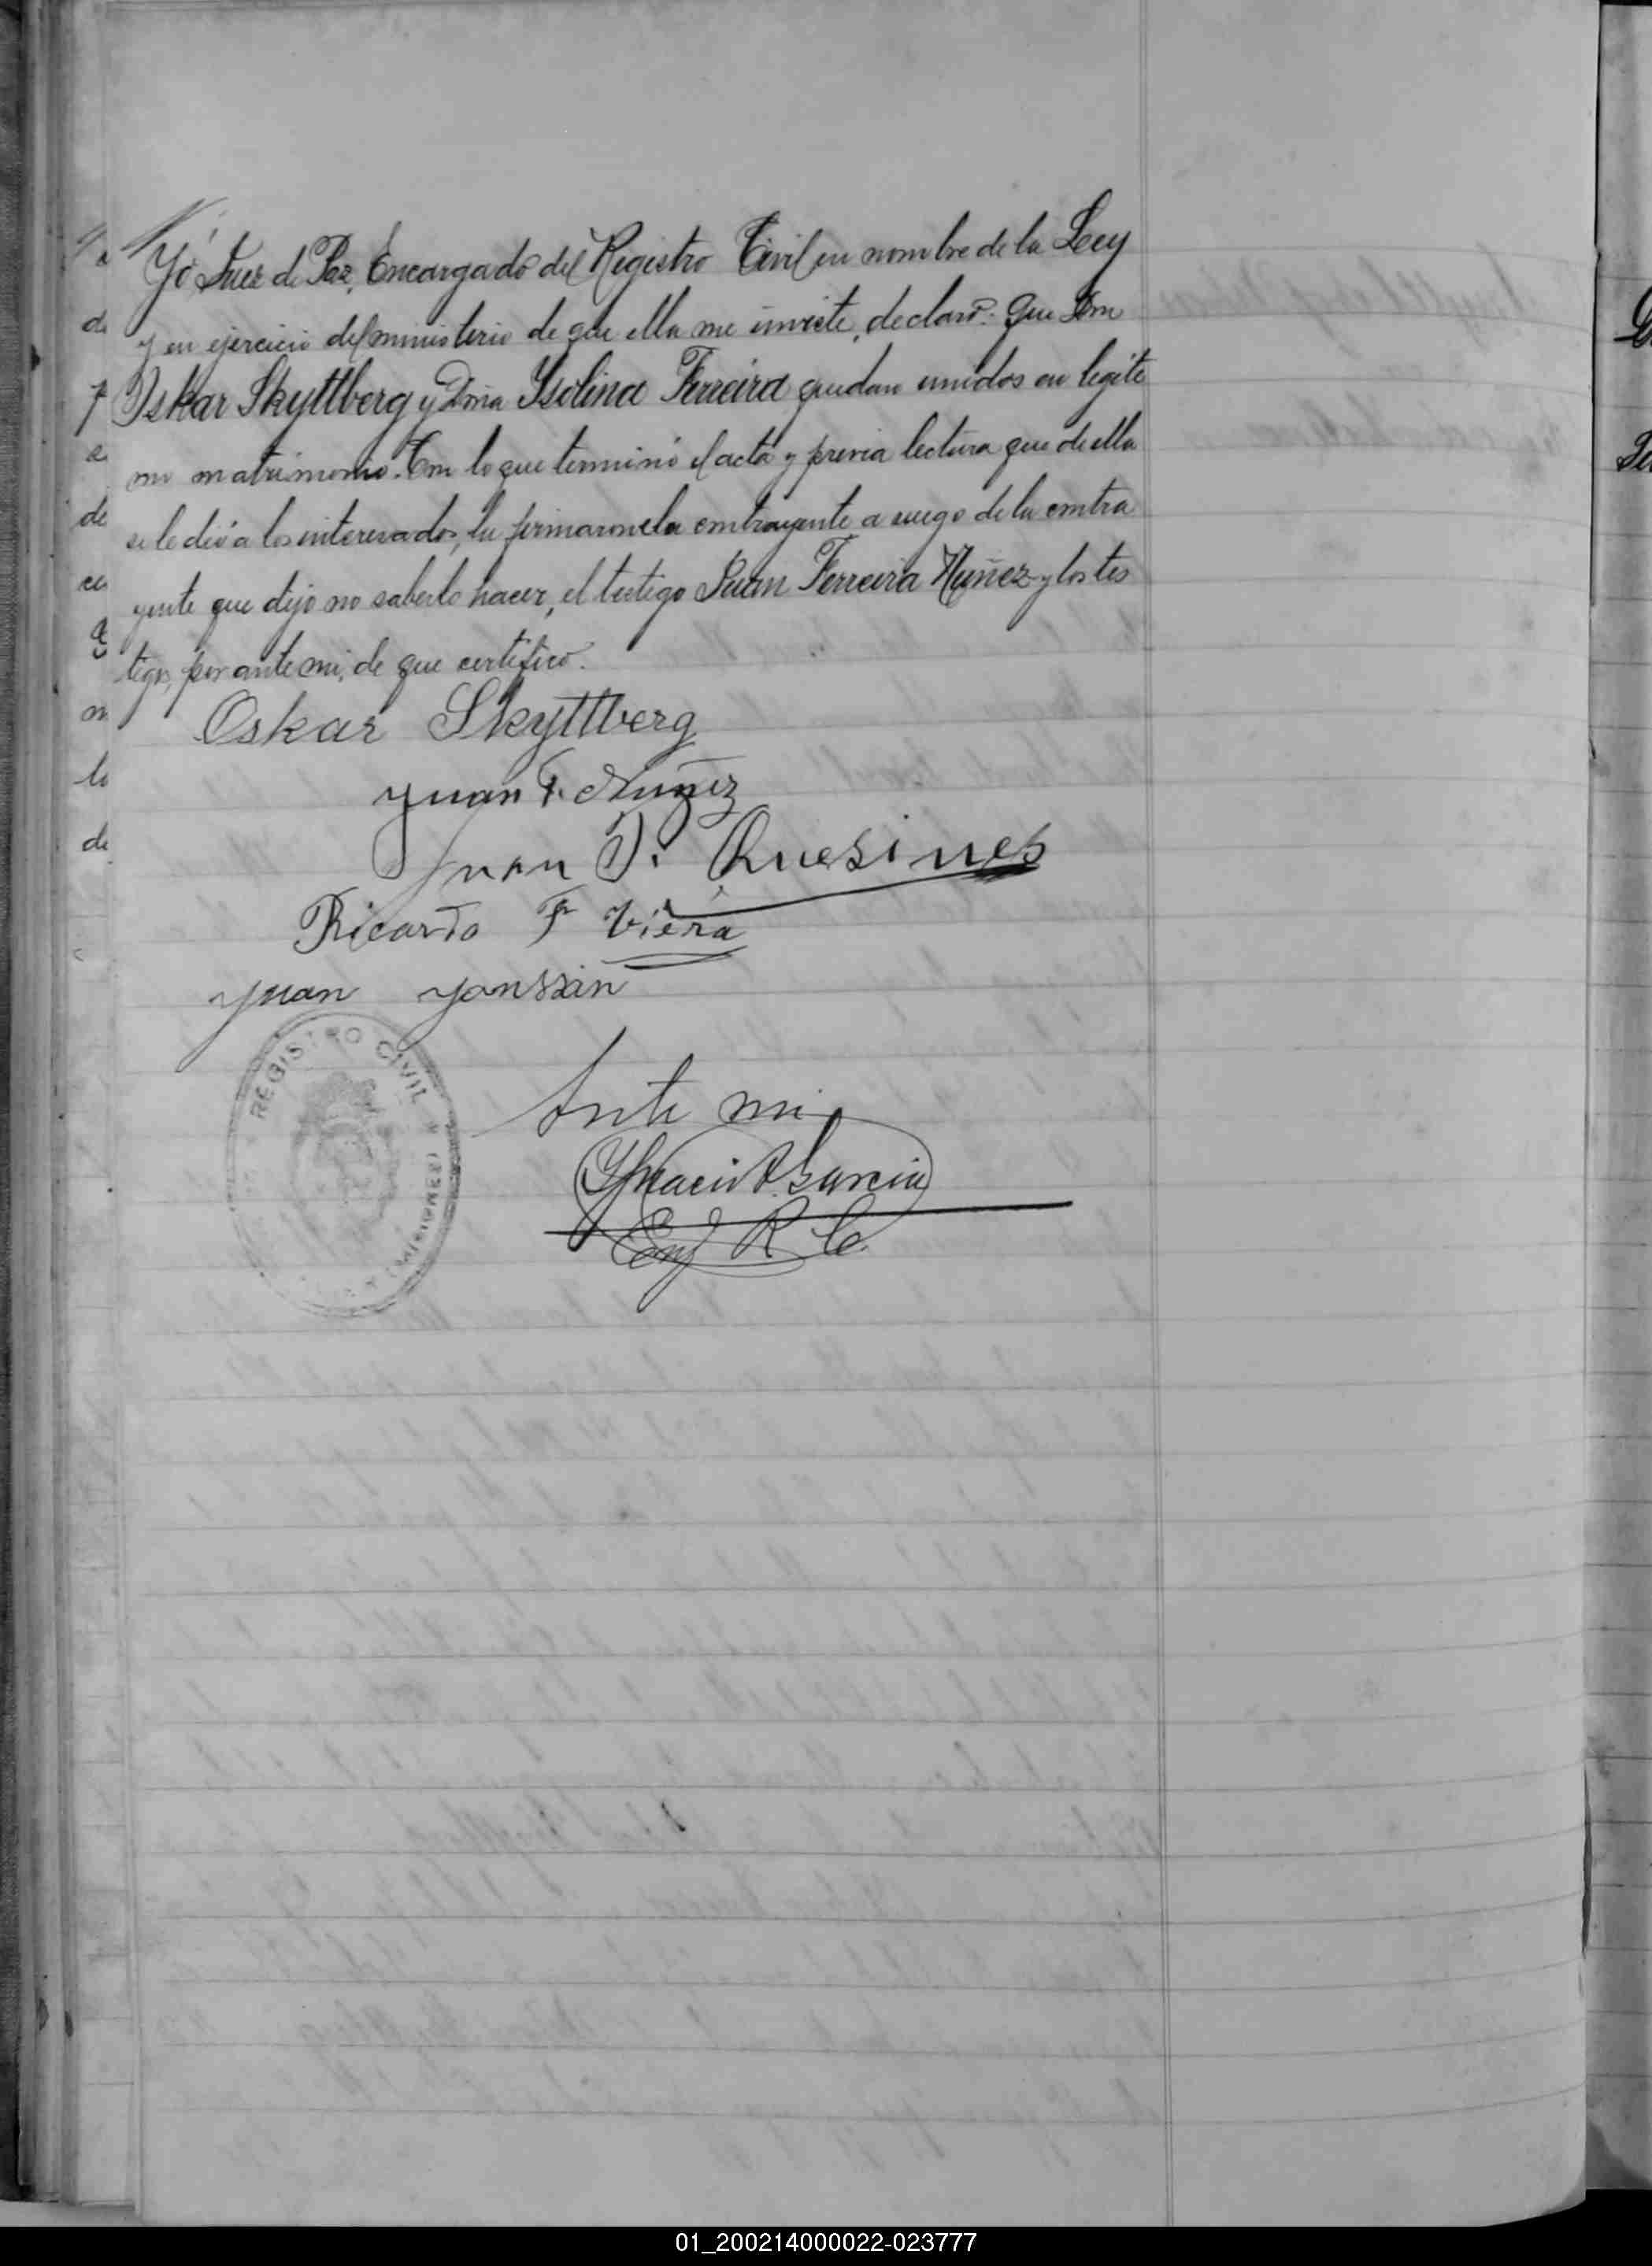 Yó Juez de Paz, Encargado del Registro Civil en nombre de la Ley
y en ejercicio del ministerio de que ella me inviste, declaro: Que Don
Oskar Skyttberg y Doña Ysolina Ferreira quedan unidos en legíti
mo matrimonio. Con lo que terminó el acta y previa lectura que de ella
se le dió a los interesados, la firmaron el contrayente a ruego de la contra
yente que dijo no saberlo hacer, el testigo Juan Ferreira Nuñez y los tes
tigos, por ante mi, de que certifico.
Oskar Skyttberg
Juan F. Nuñez
Juan
Ricardo F Viera
Juan Janssan
REGISTRO CIVIL
Ante mi
Ygnacio A. Garcia
Enc R C.
01_200214000022-023777